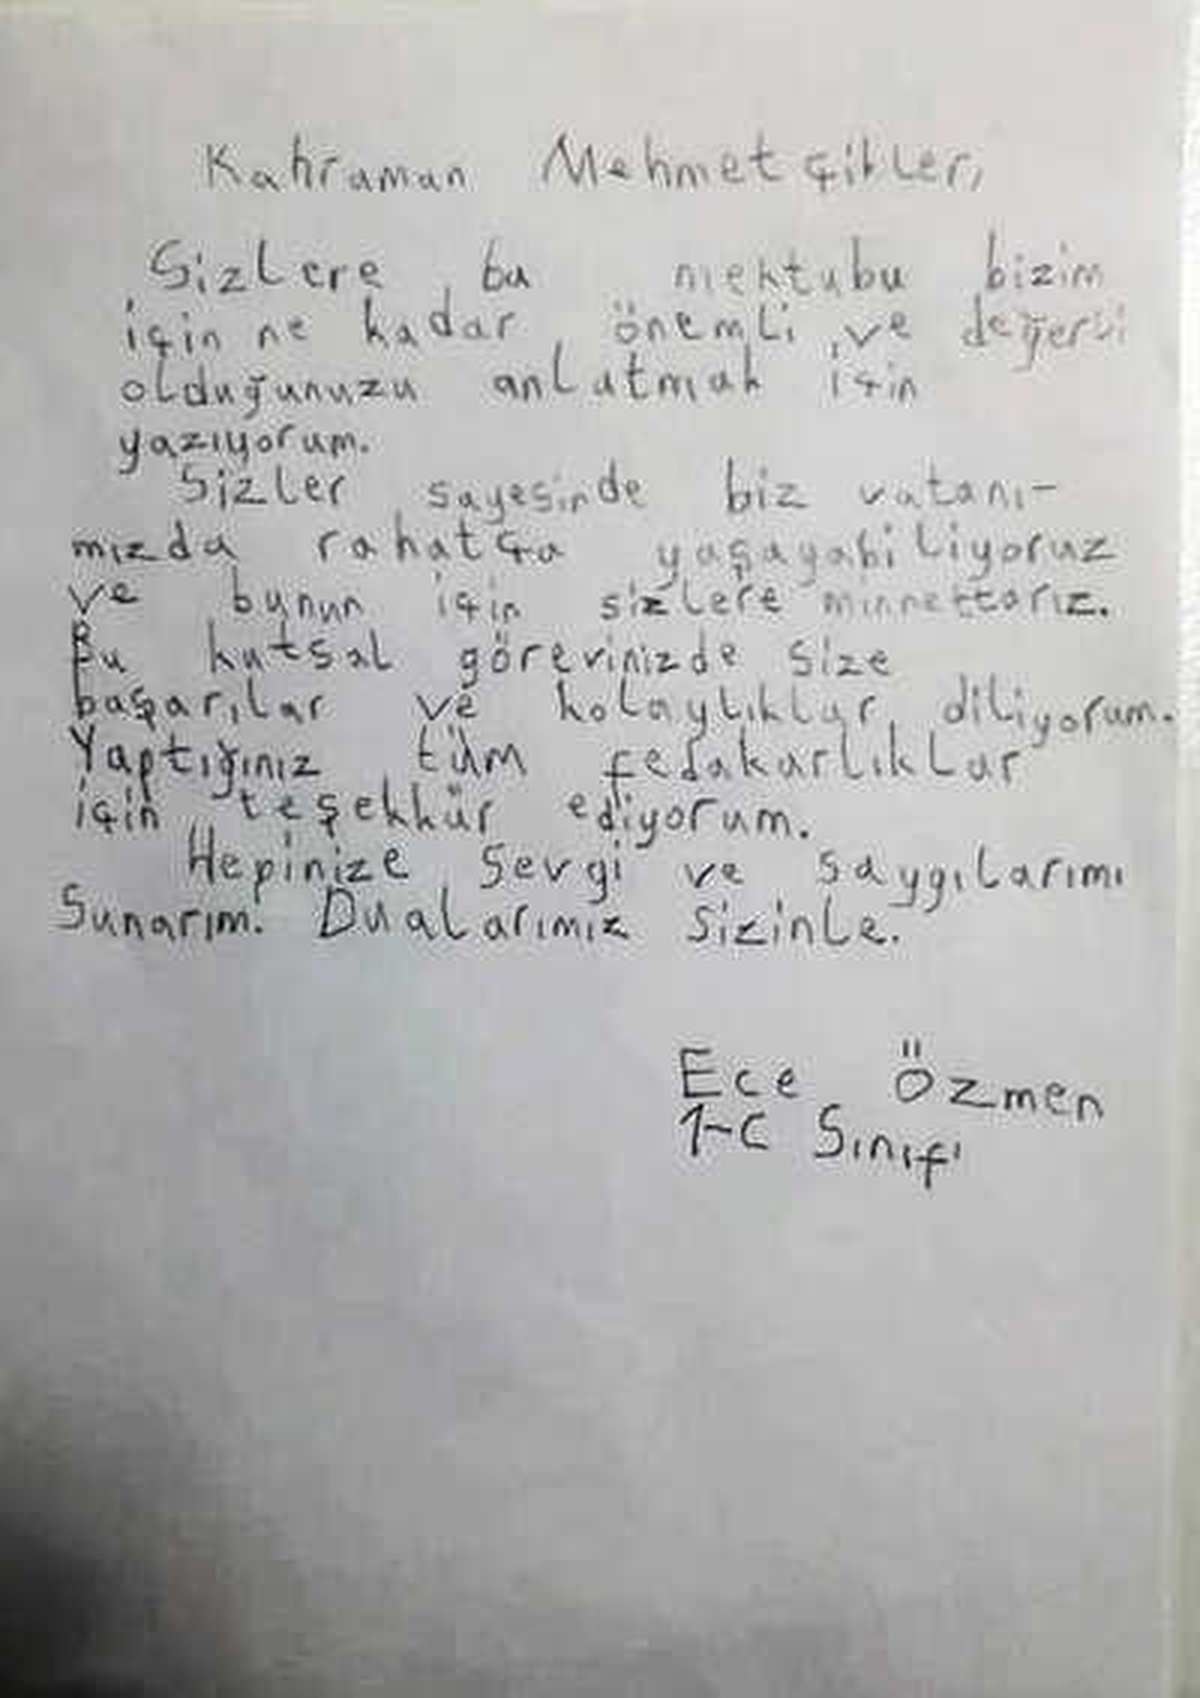 Kahraman Mehmetçikler,
Sizlere bu mektubu bizim
için ne kadar önemli ve değerli
olduğunuzu anlatmak için
yazıyorum.
Sizler sayesinde biz vatanı-
mızda rahatça yaşayabiliyoruz
ve bunun için sizlere minnettarız.
Bu kutsal görevinizde size
başarılar ve kolaylıklar diliyorum.
Yaptığınız tüm fedakarlıklar
için teşekkür ediyorum.
Hepinize sevgi ve saygılarımı
Sunarım. Dualarımız sizinle.
Ece Özmen
1-C Sınıfı